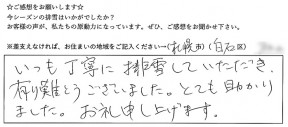 ☆ご感想をお願いします☆
今シーズンの排雪はいかがでしたか？
お客様の声が、私たちの原動力になっています。ぜひ、ご感想をお聞かせ下さい。
※差支えなければ、お住まいの地域をご記入ください→(札幌市)(白石区)
いつも丁寧に排雪していただき、
有り難とうございました。とても助かり
ました。お礼申し上げます。